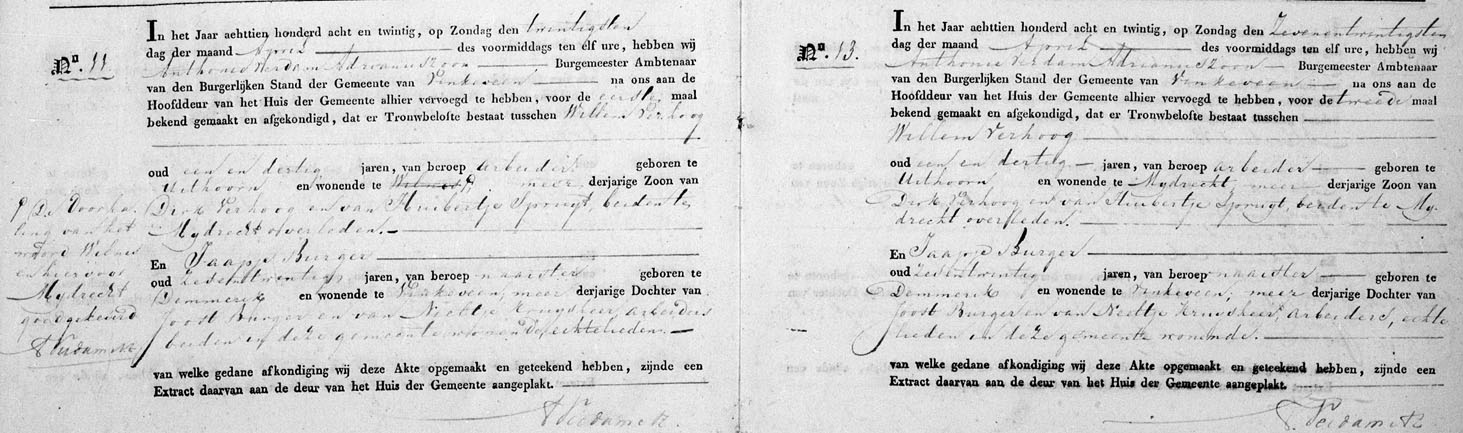 No. 11
In het Jaar aehttien honderd acht en twintig, op Zondag den twintigsten
dag der maand April des voormiddags ten elf ure, hebben wij
Anthonie Verdam Adrianus Zoon Burgemeester Ambtenaar
van den Burgerlijken Stand der Gemeente van Vinkeveen na ons aan de
Hoofddeur van het Huis der Gemeente alhier vervoegd te hebben, voor de eerste maal
bekend gemaakt en afgekondigd, dat er Trouwbelofte bestaat tusschen Willem Verhoog
oud een en dertig jaren, van beroep arbeider geboren te
Uithoorn en wonende te Wilnes meer derjarige Zoon van
Dirk Verhoog en van Huibertje Spruyt, beiden te
Mydrecht overleden.
En Jaapje Burger
oud Zesentwintig jaren, van beroep naaister geboren te
Demmerik en wonende te Vinkeveen, meer derjarige Dochter van
Joost Burger en van Neeltje arbeiders
beiden in deze gemeente wonende, echtelieden.
van welke gedane afkondiging wij deze Akte opgemaakt en geteekend hebben, zijnde een
Extract daarvan aan de deur van het Huis der Gemeente aangeplakt.
A Verdam Az
De Doorha
ling van het
woord Wilnes
en hiervoor
Mydrecht
goedgekeurd
A Verdam Az
No. 13.
In het Jaar aehttien honderd acht en twintig, op Zondag den Zevenentwintigsten
dag der maand April des voormiddags ten elf ure, hebben wij
Anthonie Verdam Adrianus Zoon Burgemeester Ambtenaar
van den Burgerlijken Stand der Gemeente van Vinkeveen na ons aan de
Hoofddeur van het Huis der Gemeente alhier vervoegd te hebben, voor de tweede maal
bekend gemaakt en afgekondigd, dat er Trouwbelofte bestaat tusschen
Willem Verhoog
oud een en dertig jaren, van beroep arbeider geboren te
Uithoorn en wonende te Mydrecht, meer derjarige Zoon van
Dirk Verhoog en van Huibertje Spruyt, beiden te My
drecht overleden.
En Jaapje Burger
oud Zesentwintig jaren, van beroep naaister geboren te
Demmerik en wonende te Vinkeveen, meer derjarige Dochter van
Joost Burger en van Neeltje arbeiders, echte
lieden in deze gemeente wonende.
van welke gedane afkondiging wij deze Akte opgemaakt en geteekend hebben, zijnde een
Extract daarvan aan de deur van het Huis der Gemeente aangeplakt.
A. Verdam Az